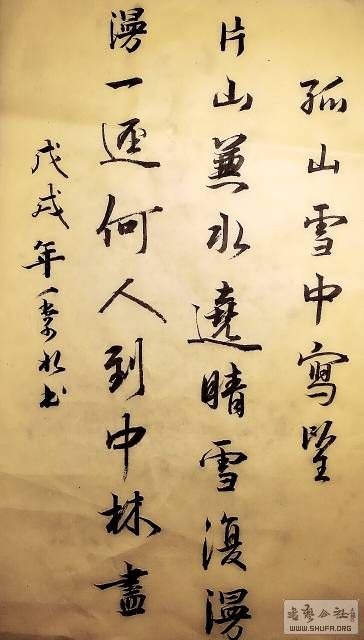 孤山雪中寫望
片山兼水遶晴雪復漫
漫一逕何人到中林盡
戊戌年一书
书艺公社
WWW.SHUFA.ORG